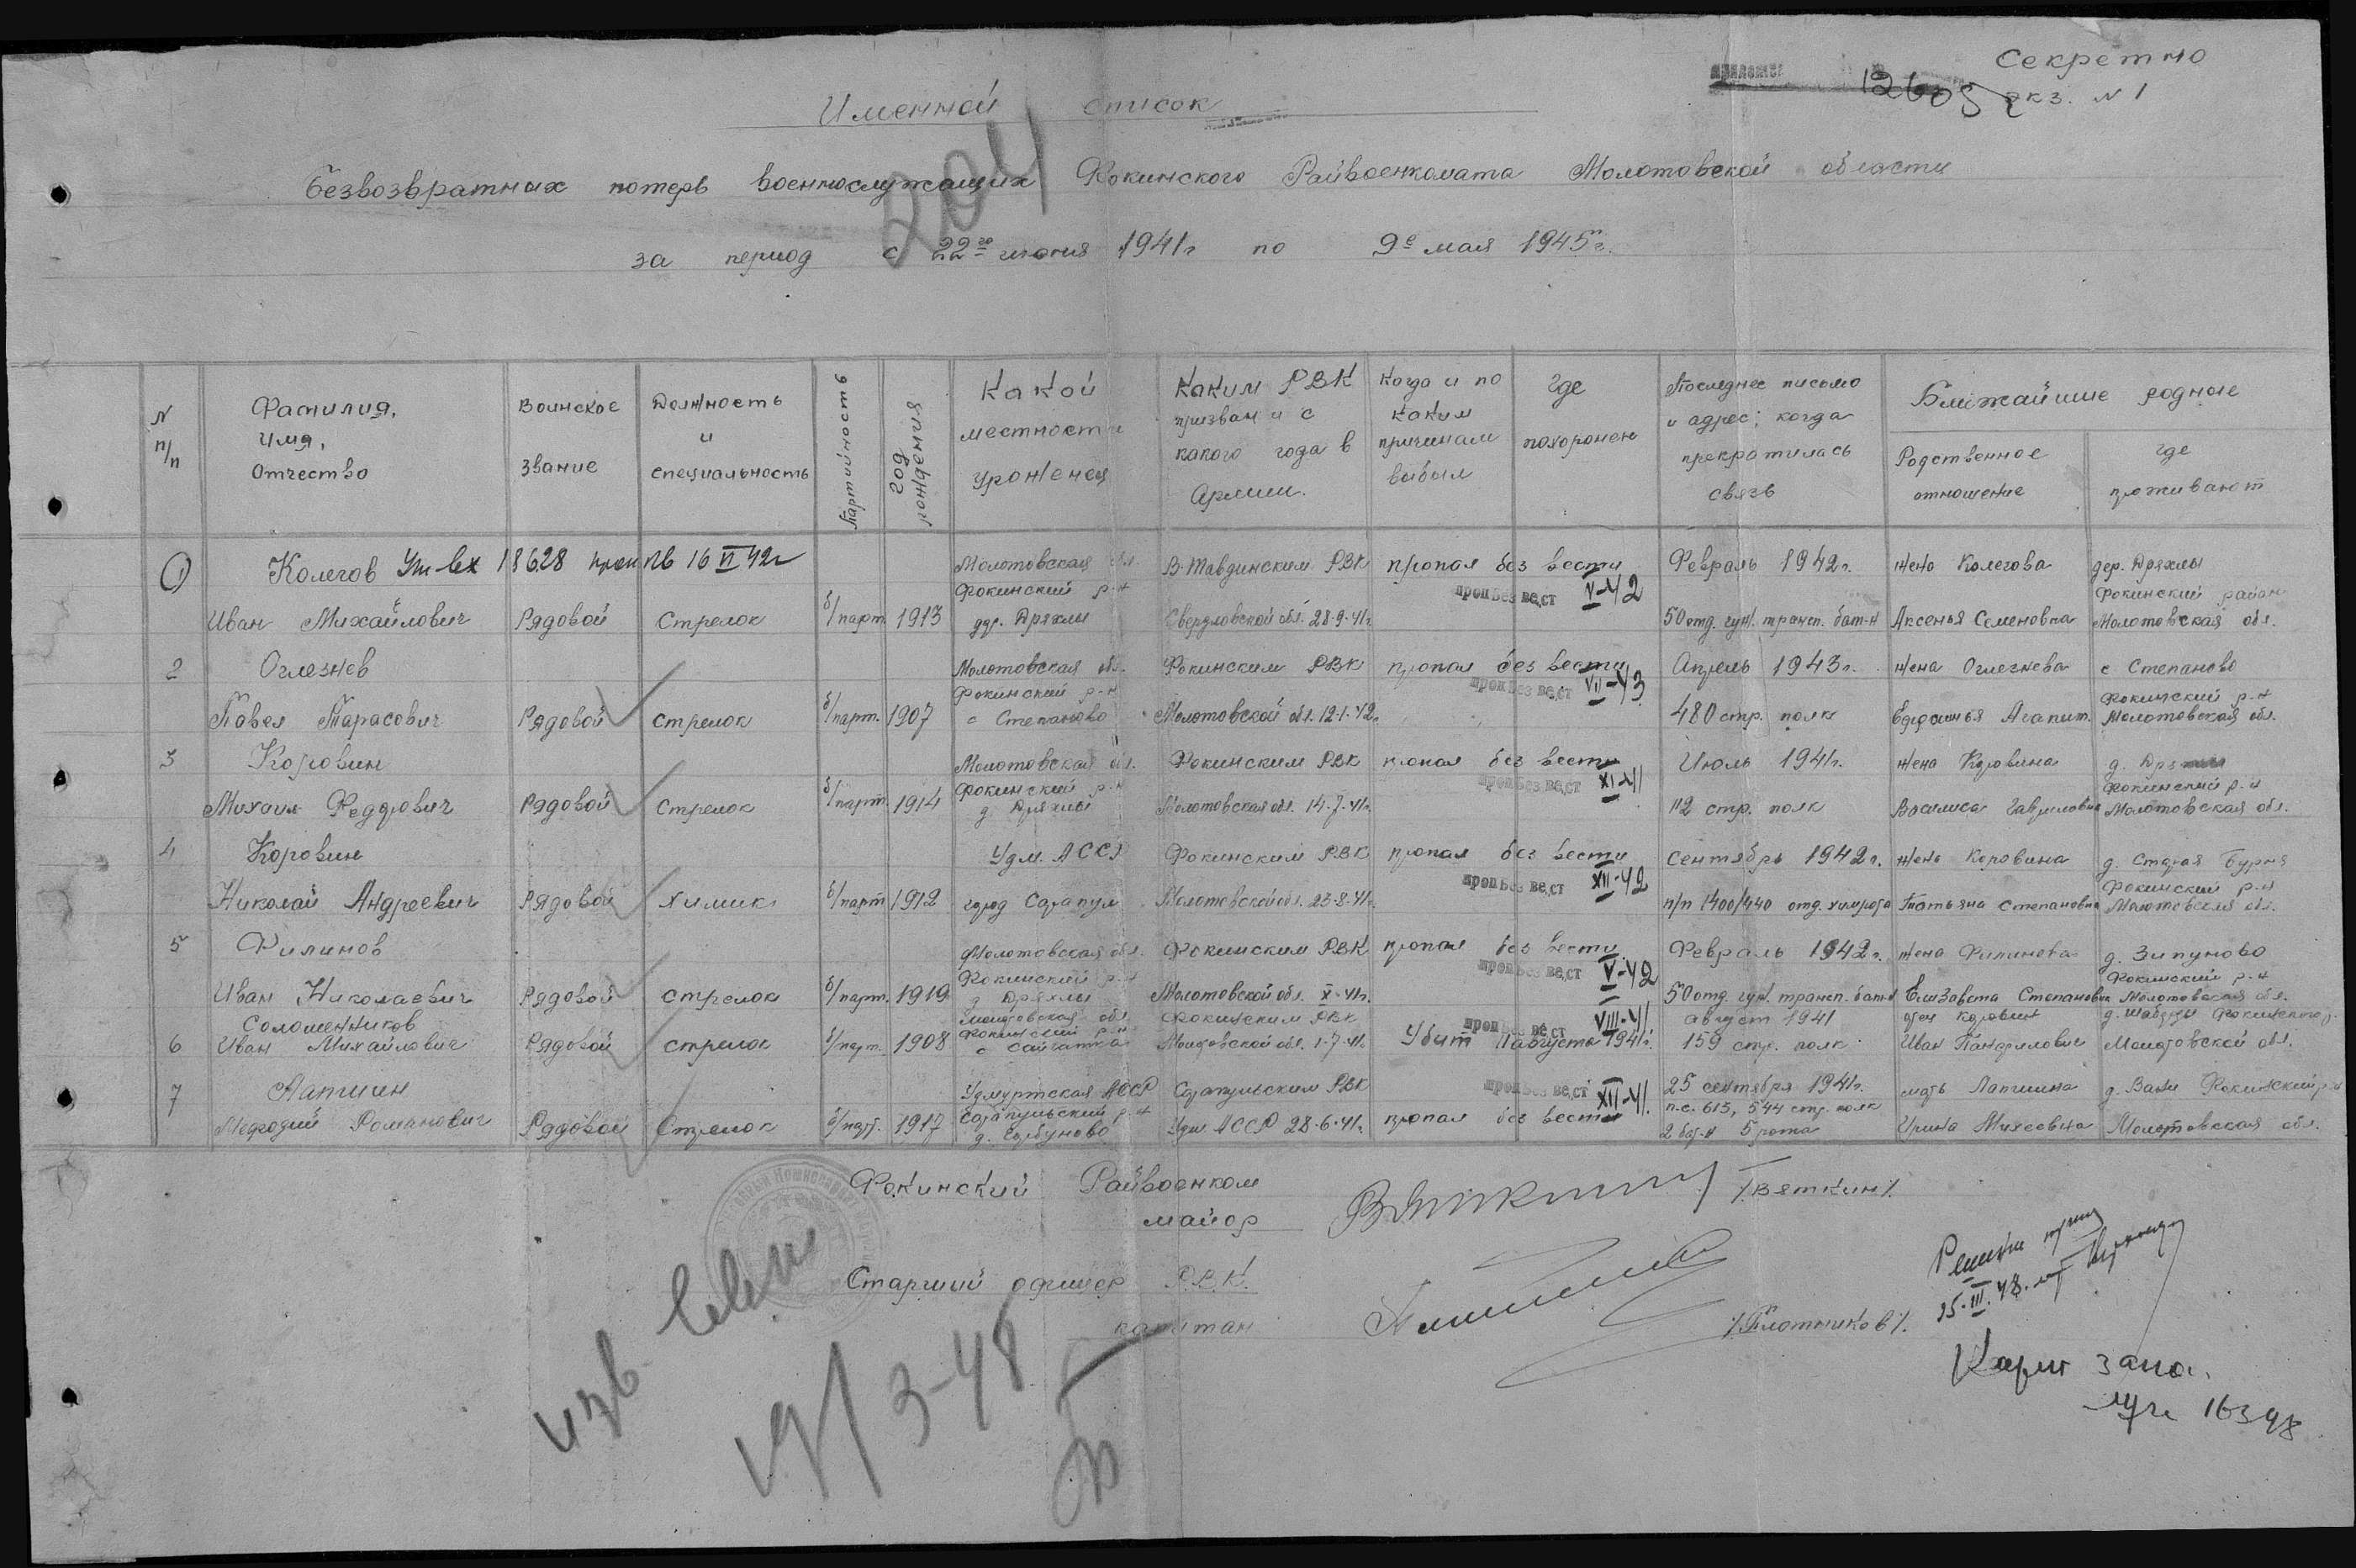 Секретно
экз. N 1
12605
Именной список
безвозвратных потерь военнослужащих Фокинского Райвоенкомата Молотовской области
204
за период с 22го июня 1941г по 9е мая 1945г.
N п/п
Фамилия, Имя, Отчество
Воинское звание
Должность и специальность
Партийность
Год рождения
Какой местности уроженец
Каким РВК призван и с какого года в Армии.
Когда и по каким причинам выбыл
Где похоронен
Последнее письмо и адрес; когда прекратилась связь
Ближайшие родные
Родственное отношение
где проживают
1 Колегов 18628 16 VI 42г Молотовская обл. В-Тавдинским РВК пропал без вести Февраль 1942г. жена Колегова дер. Дряхлы
Фокинский р-н проп без вест V-42 Фокинский район
Иван Михайлович Рядовой Стрелок б/парт 1913 дер. Дряхлы Свердловской обл. 28-9-41г. 50 отд. гуж. трансп. бат-н Аксенья Семеновна Молотовская обл.
2 Оглезнев Молотовская обл. Фокинским РВК пропал без вести Апрель 1943г. жена Оглезнева с Степаново
Фокинский р-н проп без вест VII-43 Фокинский р-н
Павел Тарасович Рядовой стрелок б/парт. 1907 с Степаново Молотовской обл. 12-1-42г. 480 стр. полк Ефросинья Агапит. Молотовская обл.
3 Коровин Молотовская обл. Фокинским РВК пропал без вести Июль 1941г. жена Коровина д.
Фокинский р-н проп без вест XI-41 Фокинский р-н
Михаил Федорович Рядовой Стрелок б/парт. 1914 д Дряхлы Молотовская обл. 14-7-41г. 112 стр. полк Василиса Гавриловна Молотовская обл.
4 Коровин Удм. АССР Фокинским РВК пропал без вести Сентябрь 1942г. жена Коровина д. Старая Бурня
проп без вест XII-42 Фокинский р-н
Николай Андреевич Рядовой Химик б/парт 1912 город Сарапул Молотовской обл. 23-8-41г. п/п 1400/440 отд. химрота Татьяна Степановна Молотовская обл.
5 Филинов Молотовская обл. Фокинским РВК пропал без вести Февраль 1942г. жена Филинова д. Зипуново
Фокинский р-н проп без вест V-42 Фокинский р-н
Иван Николаевич Рядовой стрелок б/парт. 1919 д Дряхлы Молотовской обл. X-41г. 50 отд. гуж. трансп. бат-н Елизавета Степановна Молотовская обл.
Соломенников Молотовская обл. Фокинским РВК проп без вест VIII-41 август 1941 отец Коровин
6 Иван Михайлович Рядовой стрелок б/парт. 1908 Фокинский р-н с Сайгатка Молотовской обл. 1-7-41г. Убит 11 августа 1941г. 159 стр. полк Иван Панфилович Молотовской обл.
7 Лапшин Удмуртская АССР Сарапульским РВК проп без вест XII-41. 25 сентября 1941г. мать Лапшина д. Вани Фокинский р-н
Сарапульский р-н п.с. 615, 544 стр. полк
Мефодий Романович Рядовой Стрелок б/парт. 1917 д. Горбуново Удм АССР 28-6-41г. пропал без вести 2 бат-н 5 рота Ирина Моисеевна Молотовская обл.
Фокинский Райвоенком
майор /Вяткин/.
Старший офицер Р.В.К.
капитан /Плотников/.
25.III.48.
изв.
19/3-48
16348